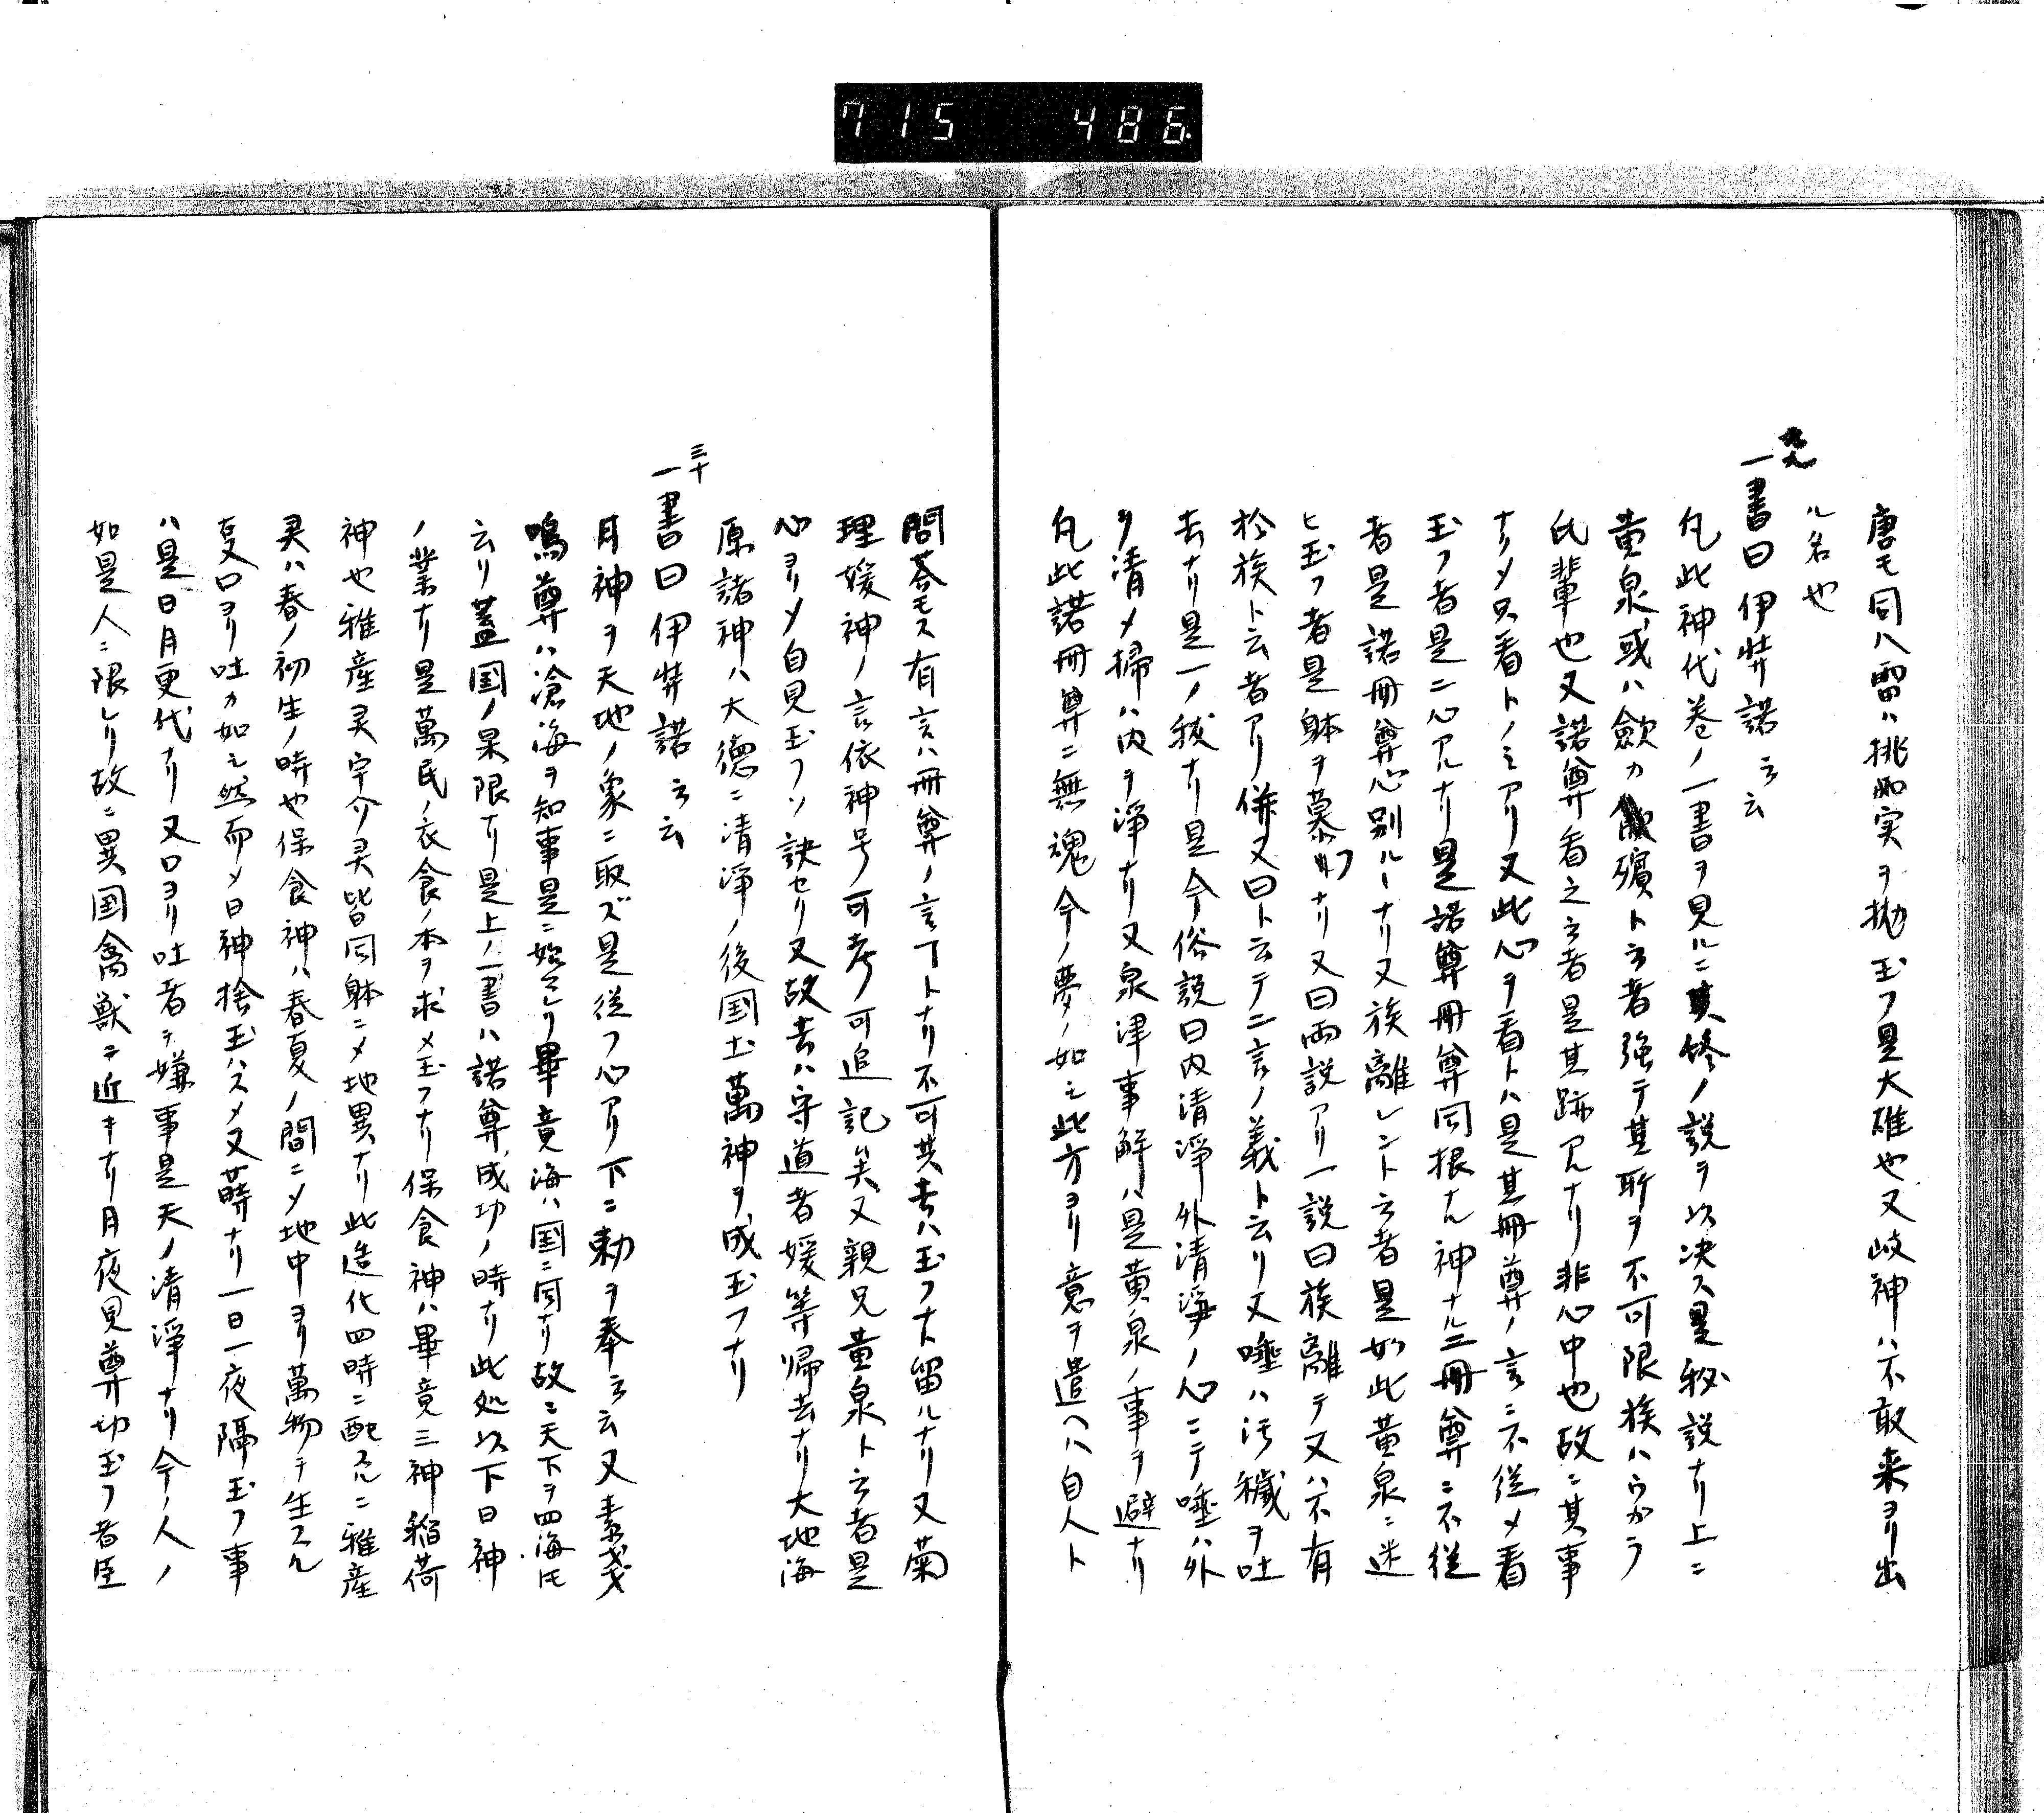 715 486
唐モ同ハ雷ハ挑而実ヲ抛玉フ是大確也又岐神ハ不敢来ヨリ出
ル名也
一書曰伊弉諾云云
凡此神代巻ノ一書ヲ見ルニ其終ノ説ヲ以决ス是秘説ナリ上ニ
黄泉或ハ歛力殯ト云者強テ其所ヲ不可限族ハウカラ
氏輩也又諾尊看之云者是其跡アルナリ非心中也故ニ其事
ナリメ只看トノミアリ又此心ヲ看トハ是其冊尊ノ言ニ不従メ看
玉フ者是二心アルナリ是諾尊冊尊同根ナル神ナルニ冊尊ニ不従
者是諾冊尊心別ルヽナリ又族離レント云者是如此黄泉ニ迷
ヒ玉フ者是躰ヲ慕フナリ又曰両説アリ一説曰族離テ又ハ不有
於族ト云者アリ併又曰ト云テ二言ノ義ト云リ又唾ハ汚穢ヲ吐
去ナリ是一ノ秡ナリ是今俗説曰内清浄外清浄ノ心ニテ唾ハ外
ヲ清メ掃ハ内ヲ浄ナリ又泉津事解ハ是黄泉ノ事ヲ避ナリ
凡此諾冊尊ニ無魂今ノ夢ノ如シ此方ヨリ意ヲ遣ヘハ自人ト
問荅モス有言ハ冊尊ノ言ヿトナリ不可共去ハ玉フナト留ルナリ又菊
理媛神ノ言依神号可考可追記矣又親兄黄泉ト云者是
心ヨリメ自見玉フソ訣セリ又故去ハ守道者媛等帰去ナリ大地海
原諸神ハ大徳ニ清浄ノ後国土萬神ヲ成玉フナリ
三十
一書曰伊弉諾云云
月神ヲ天地ノ象ニ取ズ是従フ心アリ下ニ勅ヲ奉云云又素戔
嗚尊ハ滄海ヲ知事是ニ始マレリ畢竟海ハ国ニ同ナリ故ニ天下ヲ四海トモ
云リ蓋国ノ果限ナリ是上ノ一書ハ諾尊成功ノ時ナリ此処以下日神
ノ業ナリ是萬民ノ衣食ノ本ヲ求メ玉フナリ保食神ハ畢竟三神稲荷
神也雅産灵宇介灵皆同躰ニメ地異ナリ此造化四時ニ配スルニ雅産
灵ハ春ノ初生ノ時也保食神ハ春夏ノ間ニメ地中ヨリ萬物ヲ生スル
夏又口ヨリ吐カ如シ然而メ日神捨玉ハスメ又蒔ナリ一日一夜隔玉フ事
ハ是日月更代ナリ又口ヨリ吐者ヲ嫌事是天ノ清浄ナリ今ノ人ノ
如是人ニ限レリ故ニ異国禽獣ニ近キナリ月夜見尊切玉フ者臣